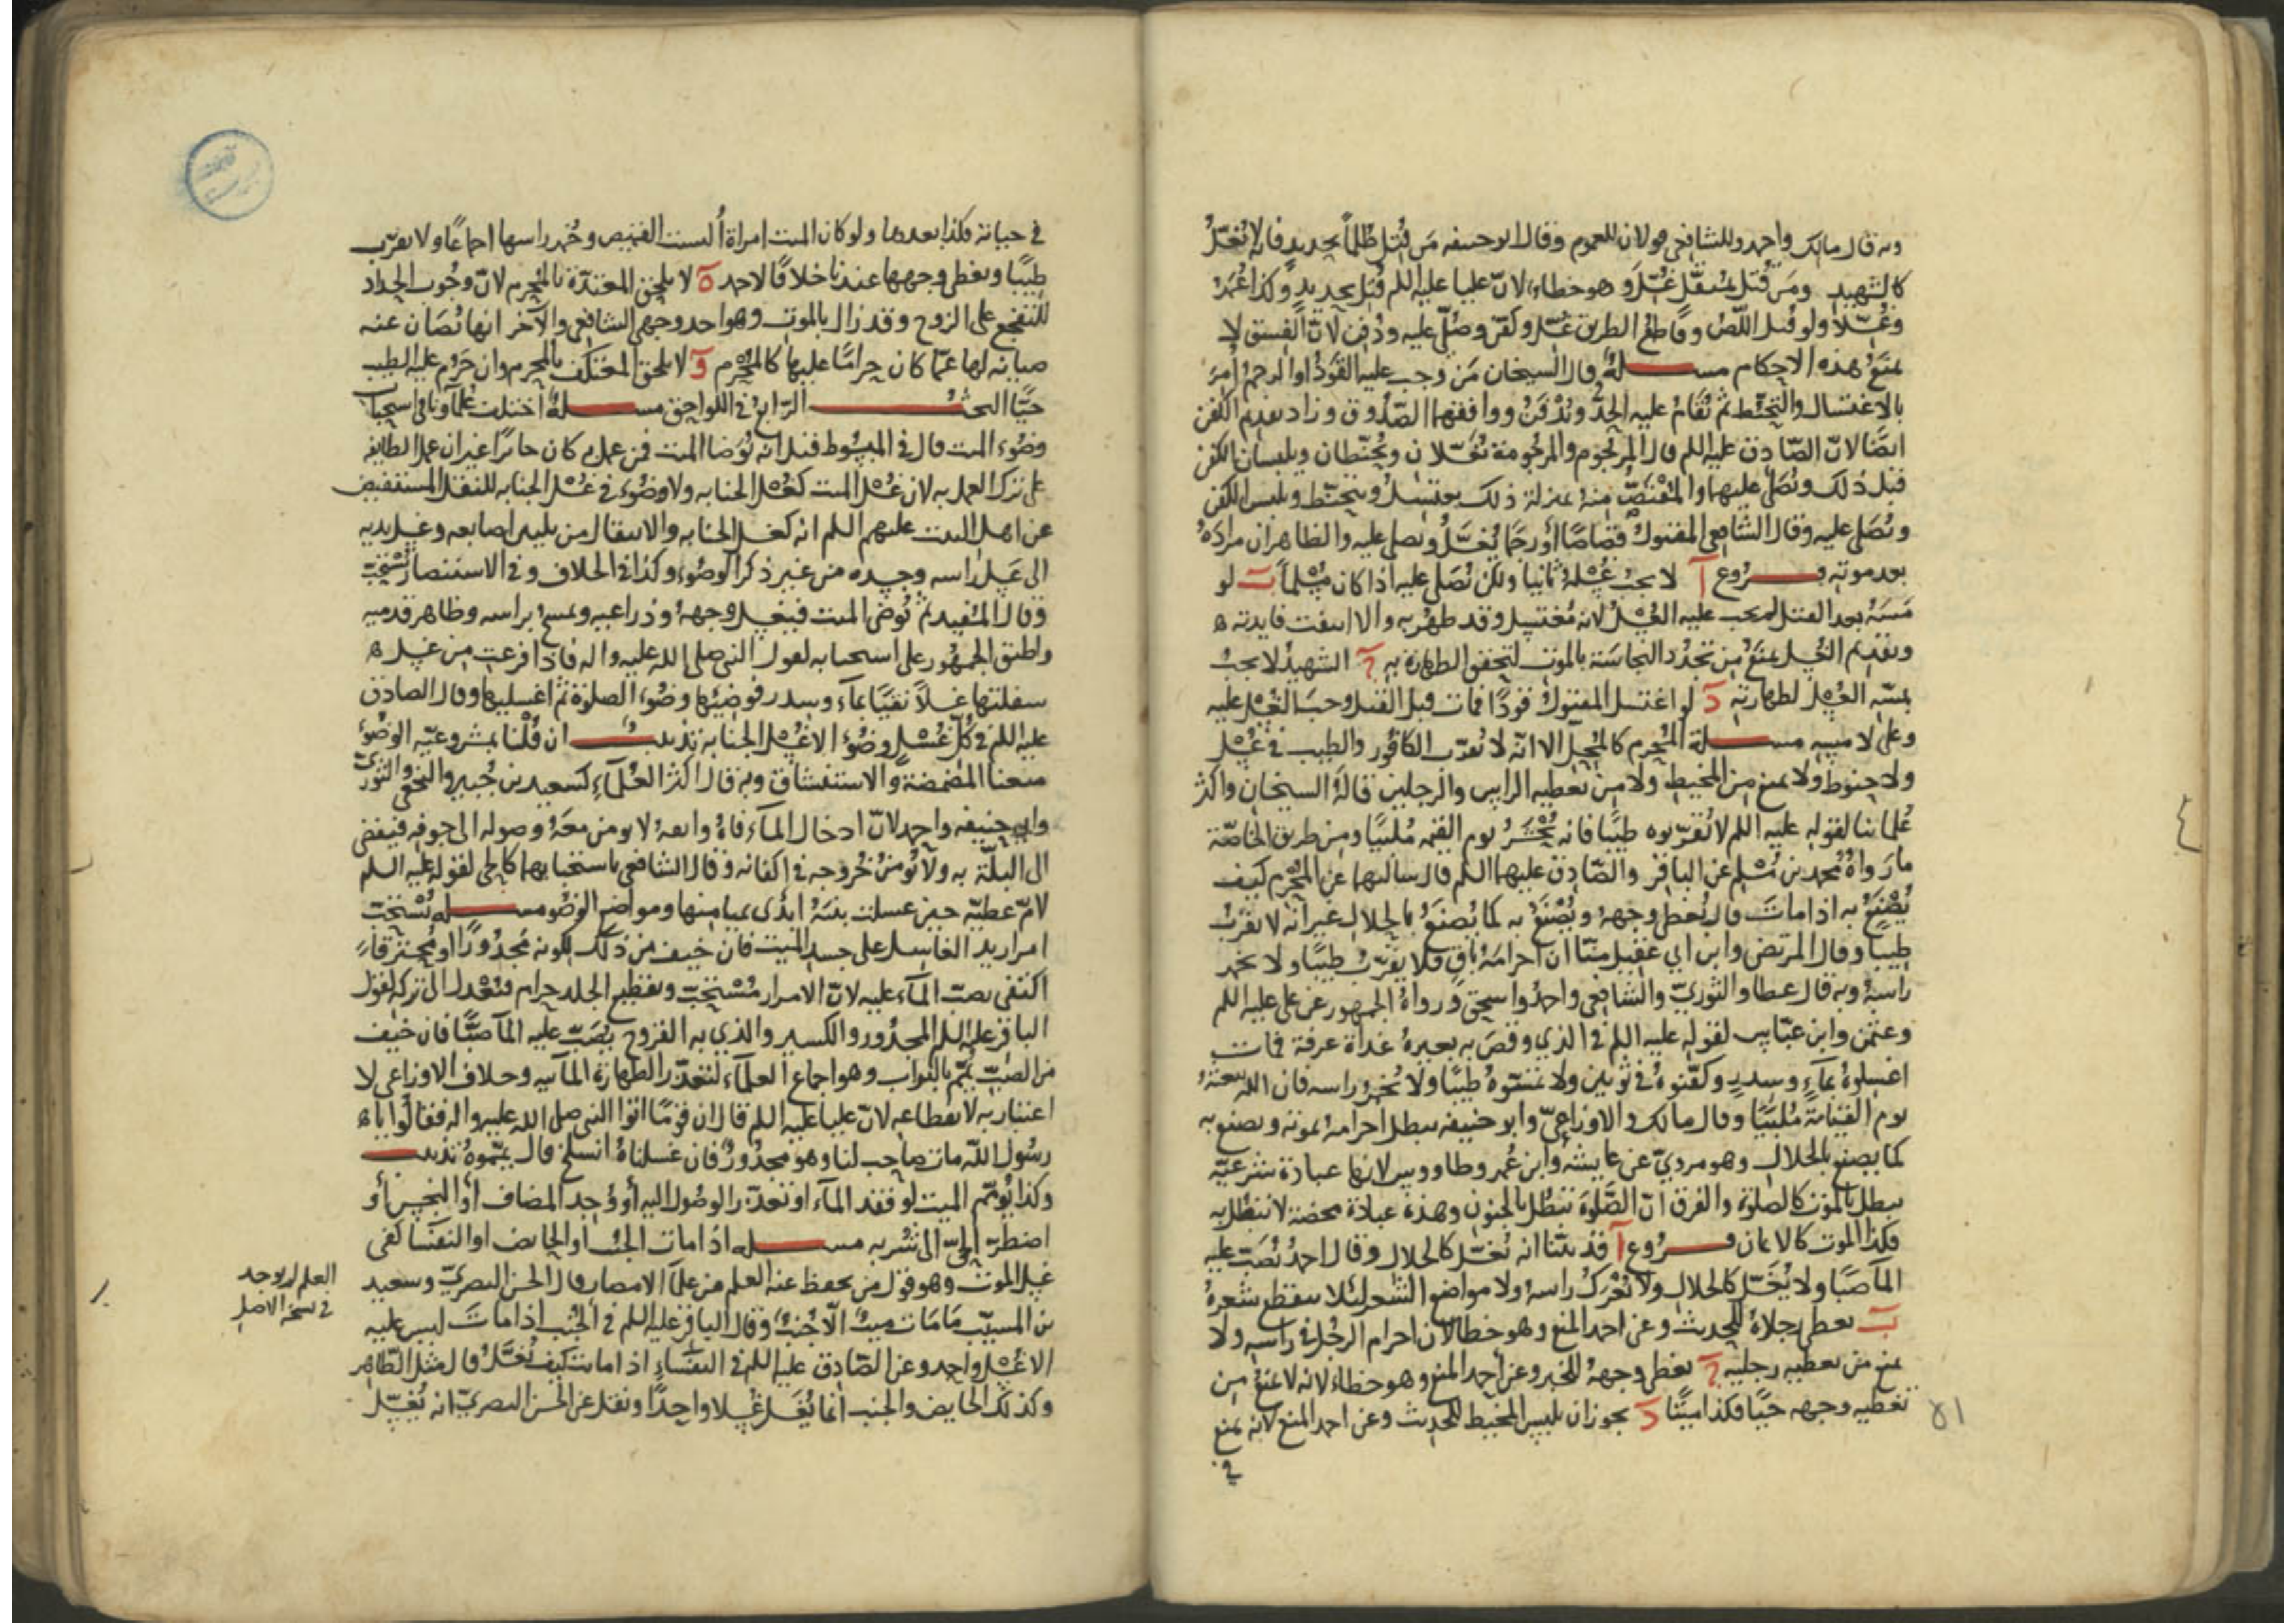 وبه قال مالك واحمد وللشافعي قولان للعموم وقال ابو حنيفه مَن قُتل ظلماً بحديد فانه لا يُغسّلُ
كالشهيد ومَن قُتل بمثقل غُسّل وهو خطاء لان عليا عليه السلم قُتل بحديد وكذا عُمَر
وغُسّلا ولو قتل اللّصُ وقاطع الطريق غُسّل وكفّن وصُلّي عليه ودُفن لان الفسق لا
يمنَعُ هذه الاحكام مســـلةٌ قال الشيخان مَن وجب عليه القَوَدُ او الرجمُ اُمِرَ
بالاغتسال والتحنّط ثم تُقَامُ عليه الحدُّ ويُدْفَنُ ووافقهما الصّدُوق وزاد تقديم الكفن
ايضًا لانّ الصّادِق عليه السلم قال المرجُوم والمرجُومة يُغَسّلان ويُحنّطان ويلبسان الكفن
قبل ذلك ويُصَلّى عليهما والمُقتَصّ منهُ بمنزلة ذلك يغتسلُ ويتحنّط ويلبس الكفن
ويُصَلّى عليه وقال الشافعي المقتولُ قصاصًا اَو رجمًا يُغسَّلُ ويصلى عليه والظاهر ان مرادَهُ
بعد موتهِ فـــروع آ لا يجبُ غُسْلهُ ثانيا ولكن يُصَلّى عليه اذا كان مُسْلماً بَ لو
مَسّهُ بعد القتل لم يجب عليه الغُسْلُ لانه مُغتسِل وقد طهُر به والا انتفت فايدته ه
وتقديم الغُسل يمنَعُ مِن تجدّد النجاسَة بالموت لتحقق الطهارة به جَ الشهيدُ لا يجبُ
بمسّهِ الغُسْل لطهارته دَ لو اغتسل المقتولُ قودًا فمات قبل القتل وجبَ الغُسل عليه
وعلى لامسِهِ مســـلة المُحرِم كالمُحِلّ الا انّه لا يُقرّب الكافُور والطيب في غُسْل
ولا حنوط ولا يمنع مِن المخيط ولا مِن تغطيه الراس والرجلين قالهُ الشيخان واكثر
عُلمائنا لقوله عليه السلم لا تُقرّبوه طيبًا فانه يُحْشَرُ يوم القيمه مُلبيًا ومِن طريق الخاصّة
ما رواهُ مُحمد بن مُسْلم عن الباقر والصّادِق عليهما السلم قال سالتهما عن المُحْرِم كيف
يُصْنَعُ به اذا ماتَ قال يُغطى وجههُ ويُصْنَعُ به كما يُصنَعُ بالحلال غير انه لا يقربُ
طيبًا وقال المرتضى وابن ابي عقيل منّا انّ احرامَهُ باقٍ فلا يقرّبُ طيبًا ولا يخمر
راسهُ وبه قال عطا والثوريّ والشافعي واحمدُ واسحق ورواهُ الجمهور عن علي عليه السلم
وعثمن وابن عبّاس لقوله عليه السلم في الذي وقصَ به بعيرهُ غداة عرفة فمات
اغسلوهُ بمآءٍ وسدرٍ وكفّنوهُ في ثوبين ولا تمسّوهُ طيبًا ولا تُخمّرُ راسه فان الله يبعثهُ
يوم القيامة مُلبّيًا وقال مالك والاوزاعيّ وابو حنيفه يبطل احرامهُ بموته ويصنع به
كما يصنع بالحلال وهو مرويّ عن عايشة وابن عُمر وطاووس لانها عبادة شرعيّه
يبطل بالموت كالصلوة والفرق انّ الصّلوة تبطل بالجنون وهذه عبادة محضة لا تبطل به
فكذا الموت كالايمان فـــروع آ قد بيّنّا انه يُغسّل كالحلال وقال احمدُ يُصَبّ عليه
المآ صَبًّا ولا يُغسّل كالحلال ولا يُعْرَكُ راسهُ ولا مواضع الشعر لئلا ينقطع شعرهُ
بَ يغطى رجلاهُ للحديث وعن احمد المنع وهو خطا لان احرام الرجُل في راسه ولا
يمنع من تغطيه رجليه جَ يغطى وجههُ للخبر وعن احمد المنع وهو خطاء لانه لا يمنَعُ مِن
تغطيه وجهه حيًّا فكذا ميتًا دَ يجوز ان يلبس المخيط للحديث وعن احمد المنع لانه يمنع
في
٥١
في حياته فكذا بعدها ولو كان الميت امراة اُلبست القميص وخُمر راسها اجماعًا ولا يقرّب
طيبًا ويغطى وجهها عندنا خلافًا لاحمد هَ لا يلحق المعتدّة بالمُحرِم لانّ وجُوب الحداد
للتفجع على الزوج وقد زال بالموت وهو احد وجهي الشافعي والآخر انها تُصَان عنه
صيانه لها عمّا كان حرامًا عليها كالمُحْرِم وَ لا يلحق المعتكف بالمحرم وان حَرُم عليه الطيب
حيًّا البحثُ ـــ الرّابعُ في اللواحق مســـلةٌ اختلف عُلمآونا في استحباب
وضُوء الميت قال في المبسُوط قيل انه يُوَضا الميت فمن عمل به كان جائزًا غير ان عمل الطايفه
على ترك العمل به لان غُسْل الميت كغُسْل الجنابه ولا وضُوء في غُسْل الجنابه للنقل المستفيض
عن اهل البيت عليهم السلم انه كغسل الجنابه والانتقال من تليين اصابعه وغسل يديه
الى غَسل راسه وجسده من غير ذكر الوضُوء وكذا في الخلاف وفي الاستبصار يُسْتحَبّ
وقال المُفيد ثم يُوضي الميت فيغسل وجههُ وذراعيه ويمسحُ براسه وظاهر قدميه
واطبق الجمهُور على استحبابه لقول النبي صلى الله عليه واله فاذا فرغتِ مِن غسل ه
سفلتها غسلاً نقيًا بمآءٍ وسدر فوضئيها وضُوء الصلوة ثم اغسليها وقال الصادق
عليه السلم في كُلّ غُسْلٍ وضُوء الا غُسْل الجنابه تذنيـــبٌ ان قُلْنا بمشروعيّه الوضُوءِ
منعنا المضمضة والاستنشاق وبه قال اكثر العُلمآءِ كسعيد بن جُبير والنخعي والثوريّ
وابي حنيفه واحمد لانّ ادخال المآء فاهُ وانفهُ لا يومن معَهُ وصوله الى جوفه فيفضي
الى المثلة به ولا يُومن خُروجه في اكفانه وقال الشافعي باستحبابهما كالحي لقوله عليه السلم
لامّ عطيّه حين غسلت بنتهُ ابدئى بميامنها ومواضع الوضُوء مســـله يُسْتحَبّ
امرار يد الغاسل على جسد الميت فان خيف من ذلك لكونه مُجدُورًا او مُحترقًا
اكتفى بصبّ المآء عليه لانّ الامرار مُسْتحَبّ وتقطيع الجلد حرام فيُعْدل الى تركه لقول
الباقر عليه السلم المجدُور والكسير والذي به القروح يُصَبّ عليه المآ صبًّا فان خيف
من الصّبّ يُمّم بالتُراب وهو اجماع العلمآء لتعذّر الطهارة المآئيه وخلاف الاوزاعي لا
اعتبار به لانقطاعه لانّ عليا عليه السلم قال ان قومًا اتوا النبي صلى الله عليه واله فقالُوا يا ه
رسُول الله مات صاحب لنا وهو مجدُورٌ فان غسلناهُ انسلخ قال يمّموهُ تذنيـــب
وكذا يُيمّم الميت لو فقد المآءُ او تعذّر الوصُول اليه او وُجد المضاف اَو النجس اَو
اضطرّ الحيّ الى شُربه مســـله اذا مات الجُنبُ اَو الحايض او النفسا كفى
غسل الموت وهو قول من يحفظ عنهُ العلم من علمآ الامصار قال الحسن البصريّ وسعيد
بن المسيّب ما مَات ميتٌ الّا جُنبٌ وقال الباقر عليه السلم في الجُنب اذا ماتَ ليس عليه
الا غُسْل واحد وعن الصّادِق عليه السلم في النفساءِ اذا ماتت كيف تُغسّلُ قال مثل الطّاهر
وكذلك الحايض والجنب انما يُغسّل غُسلا واحدًا ونقل عن الحسن البصريّ انه يُغسّل
العلم لم يوجد
في نسخ الاصل